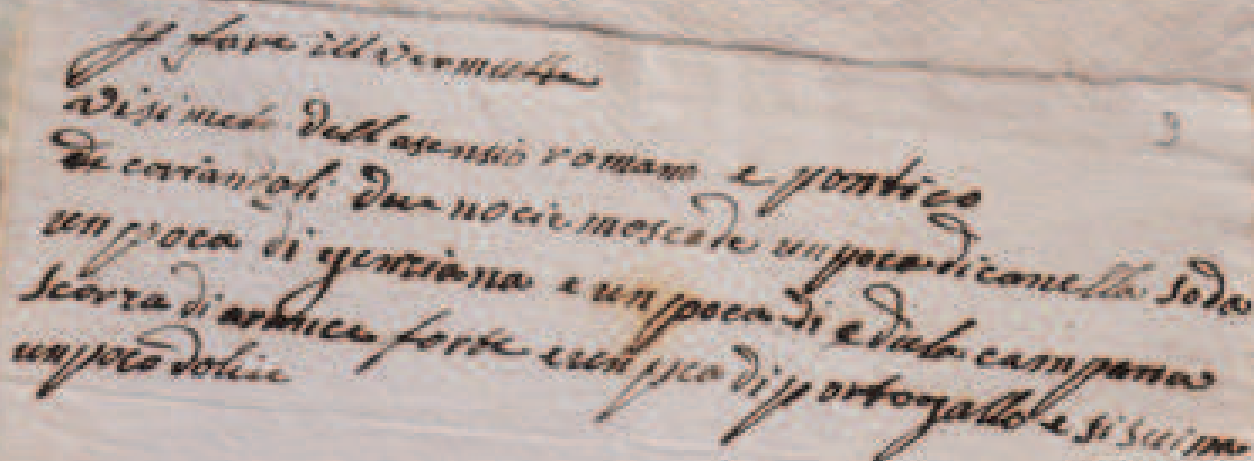 P fare ill vermutte
3
Visi mete dell asensio romano e pontico
de corianzoli due nocie moscade un poca di canella soda
un poca di genziana e un poca di edula campana
scorza di arancia forte e un poca di portogallo e si
un poco dolcie